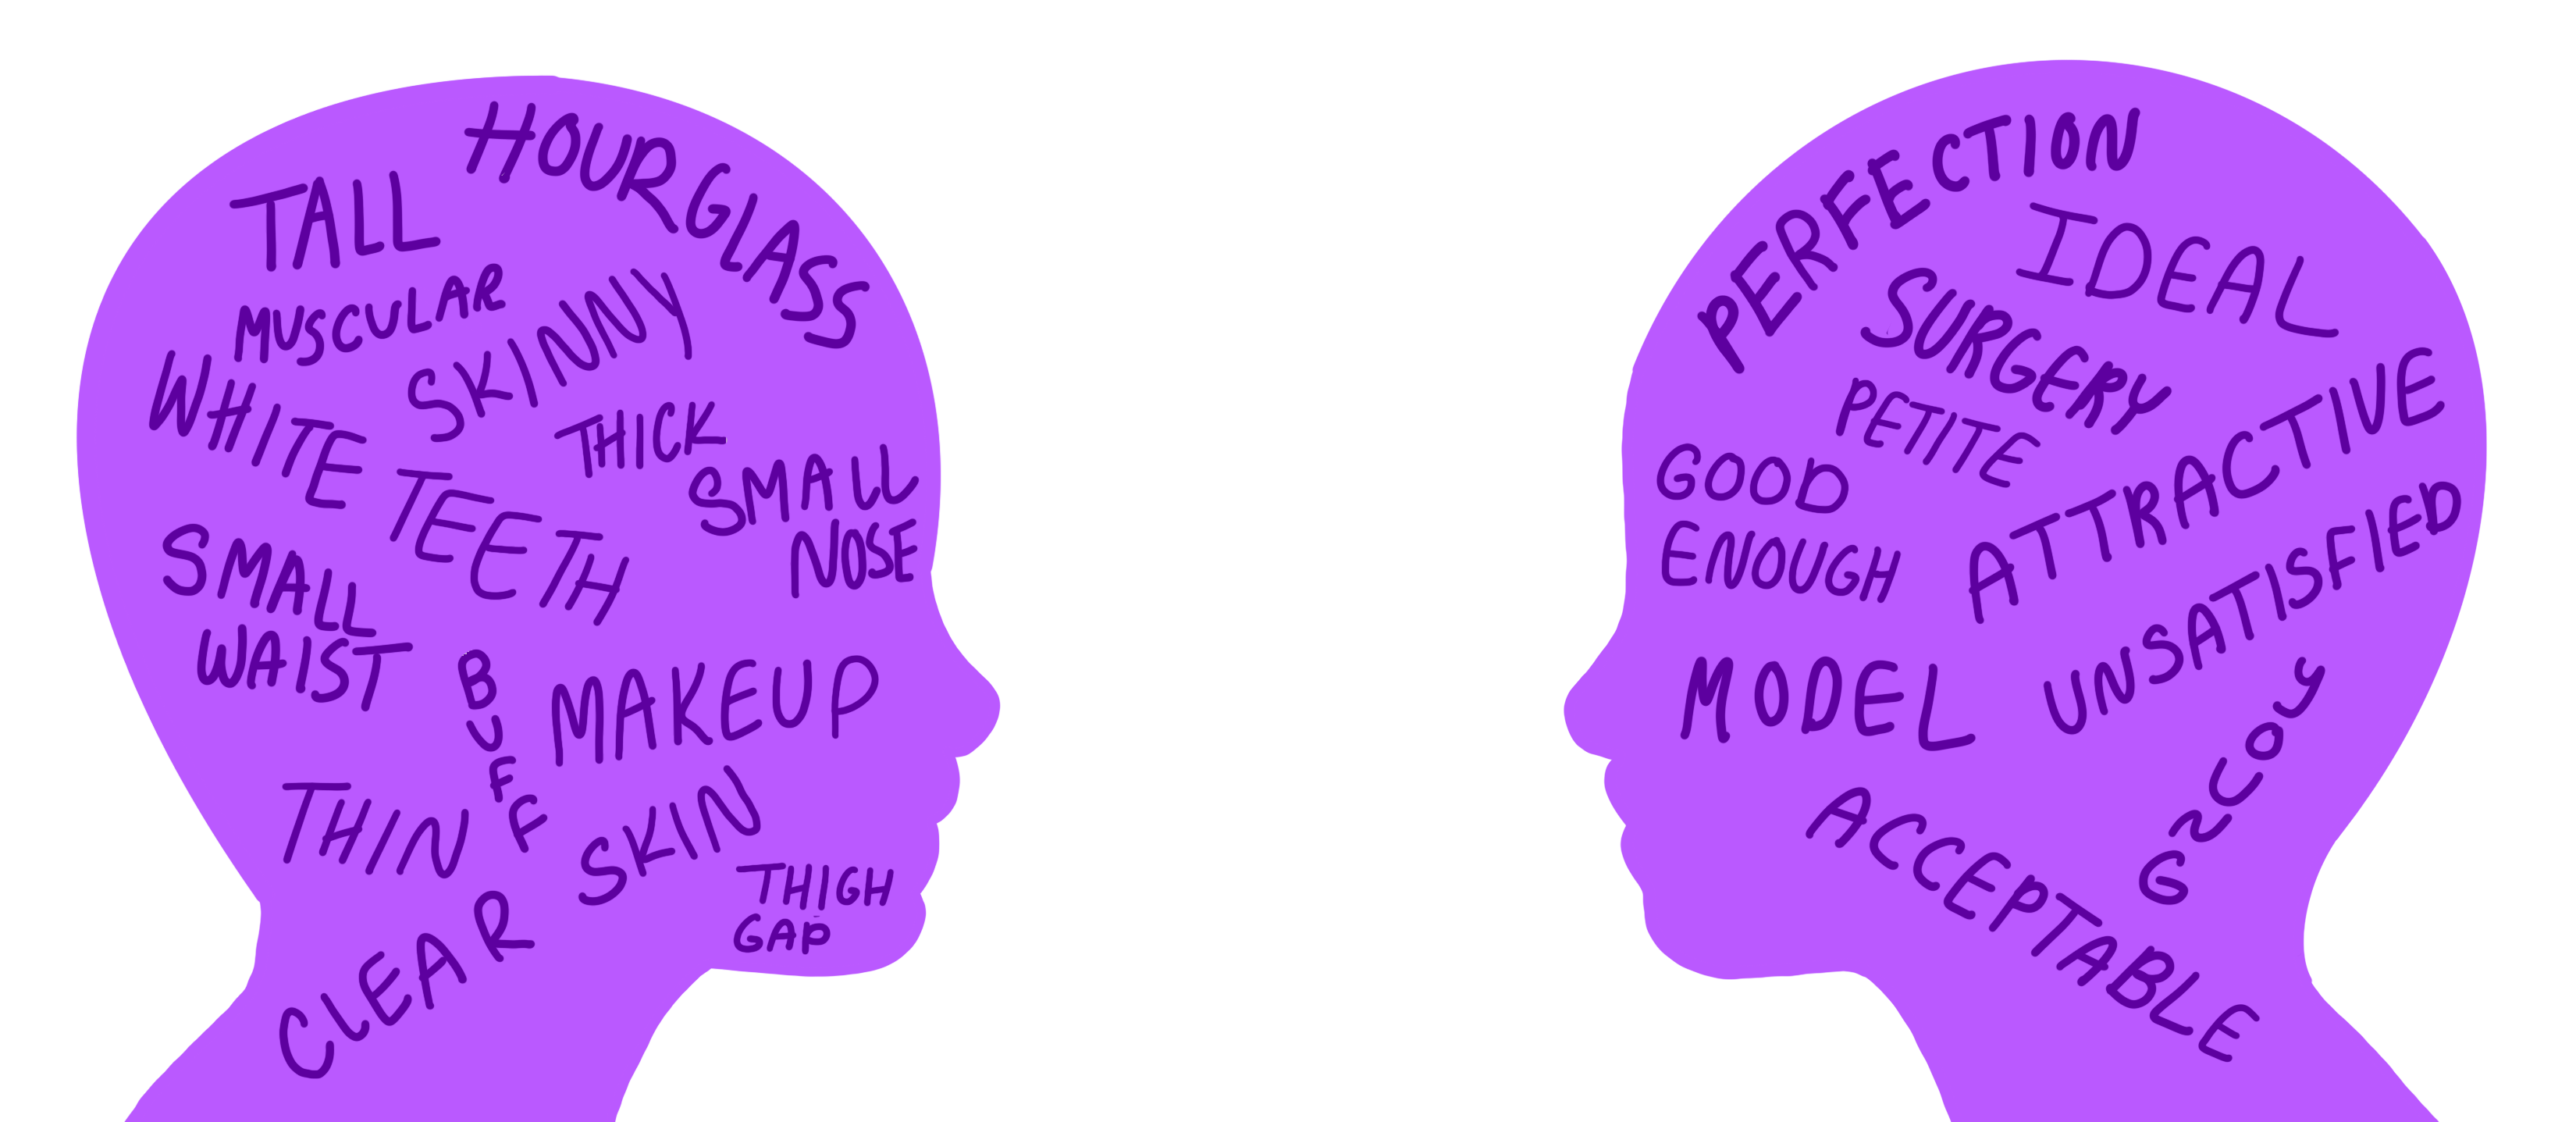 HOURGLASS
TALL
MUSCULAR
SKINNY
WHITE TEETH
THICK
SMALL
NOSE
SMALL
WAIST
BUFF
MAKEUP
THIN
CLEAR SKIN
THIGH
GAP
PERFECTION
IDEAL
SURGERY
PETITE
GOOD
ENOUGH
ATTRACTIVE
UNSATISFIED
MODEL
YOUNG
ACCEPTABLE